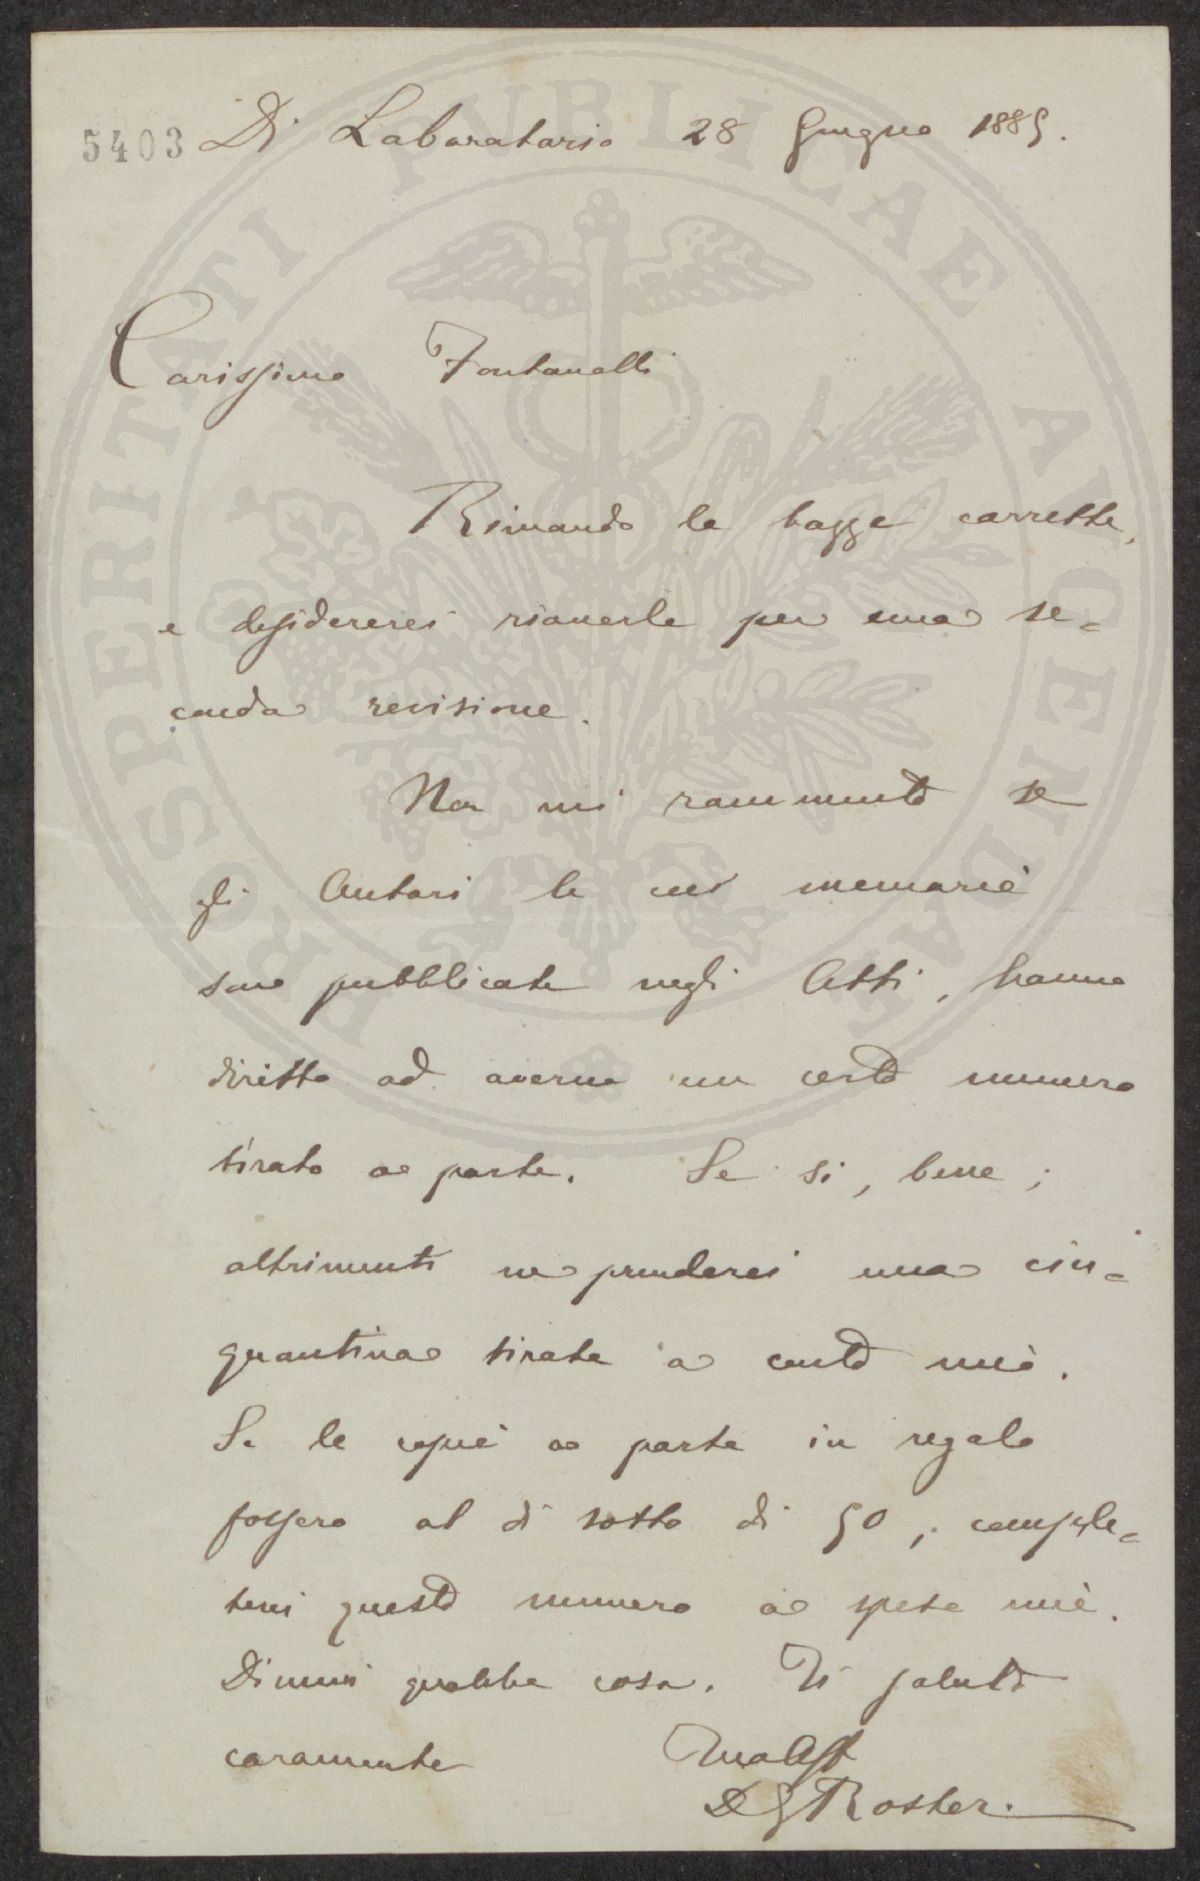 5403 Di Laboratorio 28 Giugno 1885.
Carissimo Fontanelli
Rimando le bozze corrette,
e desidererei riaverle per una se-
conda revisione.
Non mi rammento se
gli Autori le cui memorie
sono pubblicate negli Atti, hanno
diritto ad averne un certo numero
tirato a parte. Se si, bene;
altrimenti ne prenderei una cin-
quantina tirate a conto mio.
Se le copie a parte in regalo
fossero al di sotto di 50, comple-
terei questo numero a spese mie.
Dimmi qualche cosa. Ti saluto
caramente
Tuo Aff
D G Roster.
PROSPERITATI PUBLICAE AUGENDAE